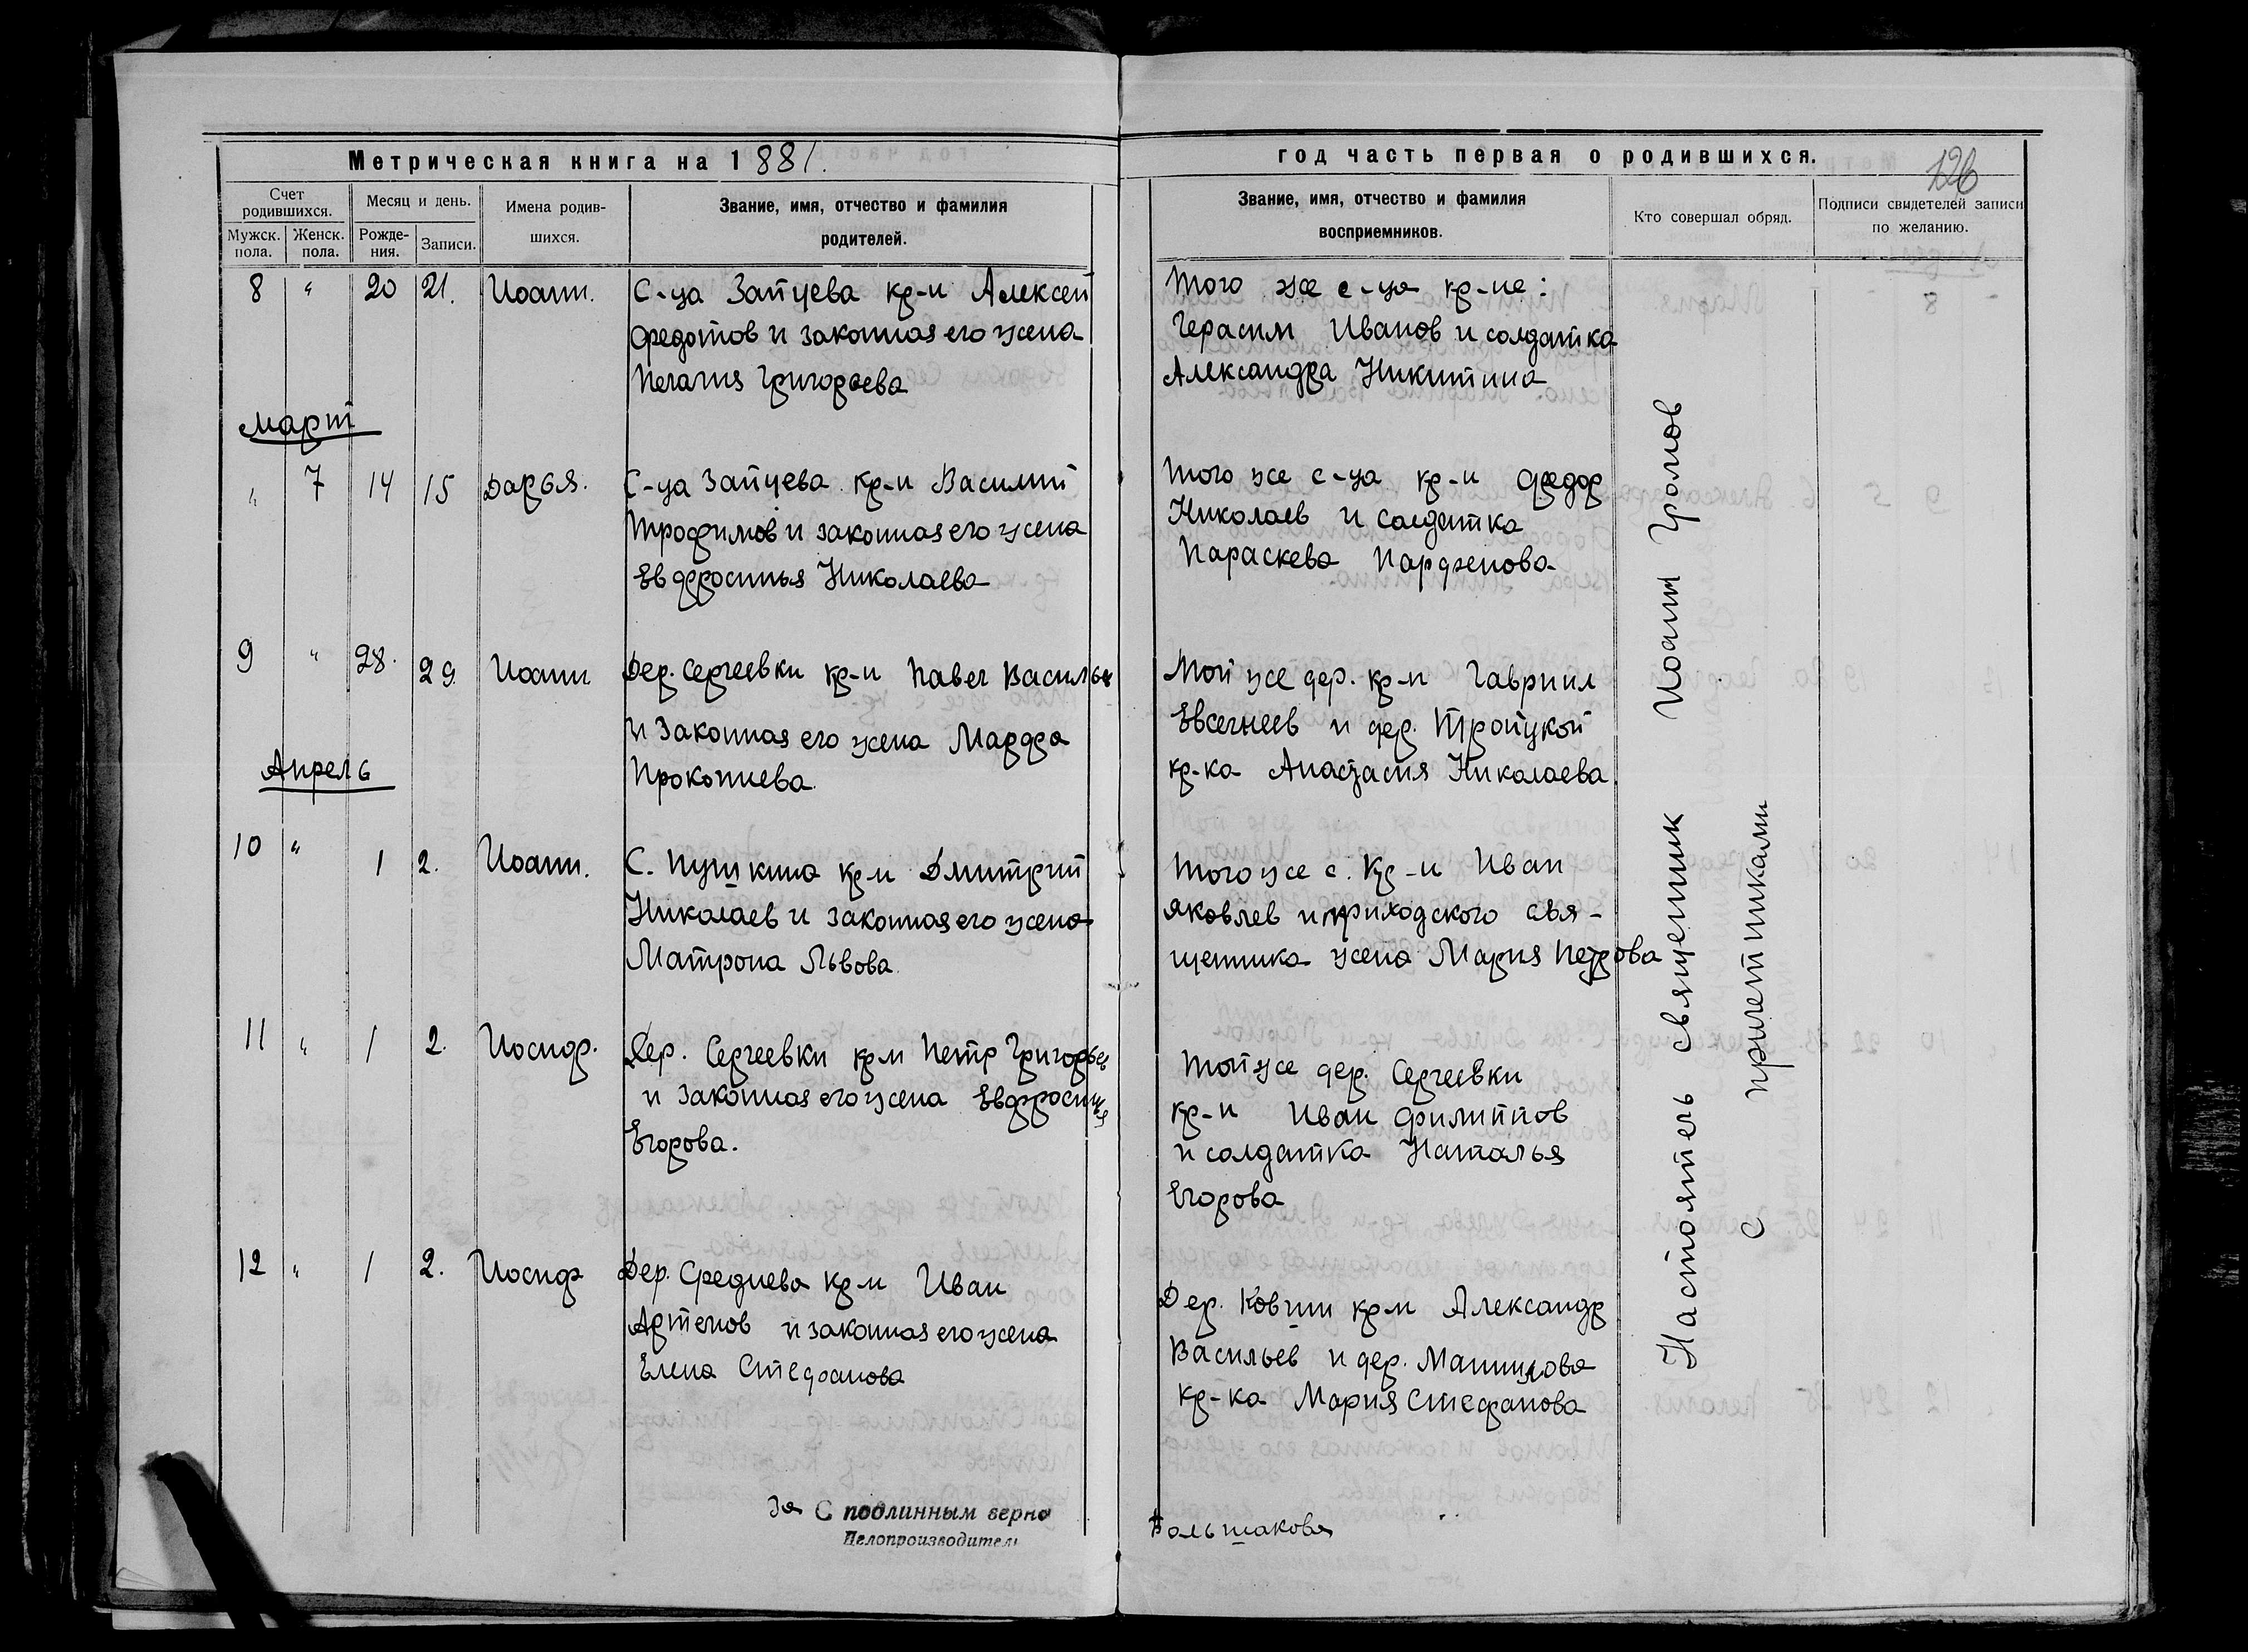 Метрическая книга на 1881.
Счет родившихся.
Месяц и день.
Имена родив-
шихся.
Звание, имя, отчество и фамилия
родителей.
Мужск. пола.
Женск. пола.
Рожде-
ния.
Записи.
8 " 20 21. Иоанн. С-ца Зайцева кр-н Алексей
Федотов и законная его жена
Пелагия Григорьева
Март
" 7 14 15 Дарья. С-ца Зайцева кр-н Василий
Трофимов и законная его жена
Евфросинья Николаева
9 " 28. 29. Иоанн Дер. Сергеевки кр-н Павел Васильев
и законная его жена Марфа
Прокопиева.
Апрель
10 " 1 2. Иоанн. С. Пушкина кр-н Дмитрий
Николаев и законная его жена
Матрона Львова.
11 " 1 2. Иосиф. Дер. Сергеевки кр-н Петр Григорьев
и законная его жена Евфросиния
Егорова.
12 " 1 2. Иосиф Дер. Среднева кр-н Иван
Артемов и законная его жена
Елена Стефанова
За С подлинным верно
Делопроизводитель
год часть первая о родившихся.
126
Звание, имя, отчество и фамилия
восприемников.
Кто совершал обряд.
Подписи свидетелей записи
по желанию.
Того же с-ца кр-не:
Герасим Иванов и солдатка
Александра Никитина
Того же с-ца кр-н Федор
Николаев и солдатка
Параскева Парфенова
Той же дер. кр-н Гавриил
Евсегнеев и дер. Троицкой
кр-ка Анастасия Николаева.
Того же с. Кр-н Иван
Яковлев и приходского свя-
щенника жена Мария Петрова
Той же дер. Сергеевки
кр-н Иван Филиппов
и солдатка Наталья
Егорова
Дер. Ковши кр-н Александр
Васильев и дер.
кр-ка Мария Стефанова
Настоятель священник Иоанн Громов
с причетниками
Большакова